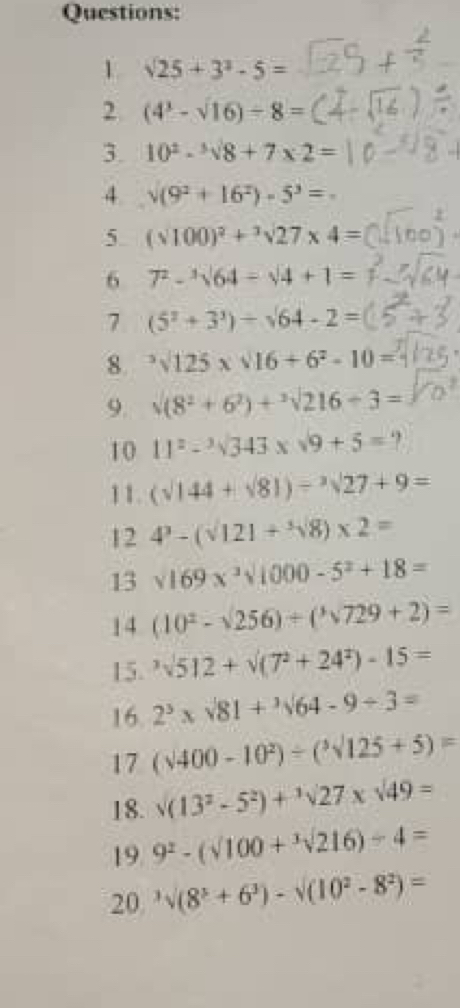 Questions:
1. √25 + 3² - 5 = √25 +
2. (4³ - √16) ÷ 8 = (4³ - √16) ÷
3. 10² - ³√8 + 7 x 2 = 10² - ³√8 +
4. √(9² + 16²) - 5³ = -
5. (√100)² + ³√27 x 4 = (√100)²
6. 7² - ³√64 ÷ √4 + 1 = 7² - ³√64
7. (5² + 3³) ÷ √64 - 2 = (5² + 3
8. ³√125 x √16 + 6² - 10 = ³√125
9. √(8² + 6²) + ³√216 ÷ 3 =
10. 11² - ³√343 x √9 + 5 = ?
11. (√144 + √81) ÷ ³√27 + 9 =
12. 4³ - (√121 + ³√8) x 2 =
13. √169 x ³√1000 - 5² + 18 =
14. (10² - √256) ÷ (³√729 + 2) =
15. ³√512 + √(7² + 24²) - 15 =
16. 2³ x √81 + ³√64 - 9 ÷ 3 =
17. (√400 - 10²) ÷ (³√125 + 5) =
18. √(13² - 5²) + ³√27 x √49 =
19. 9² - (√100 + ³√216) ÷ 4 =
20. ³√(8³ + 6³) - √(10² - 8²) =